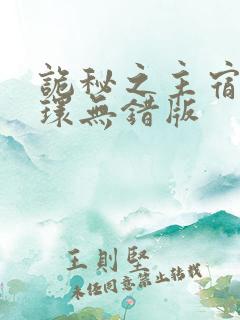 詭秘之主宿
環無錯版
王則堅
未經同意禁止轉載